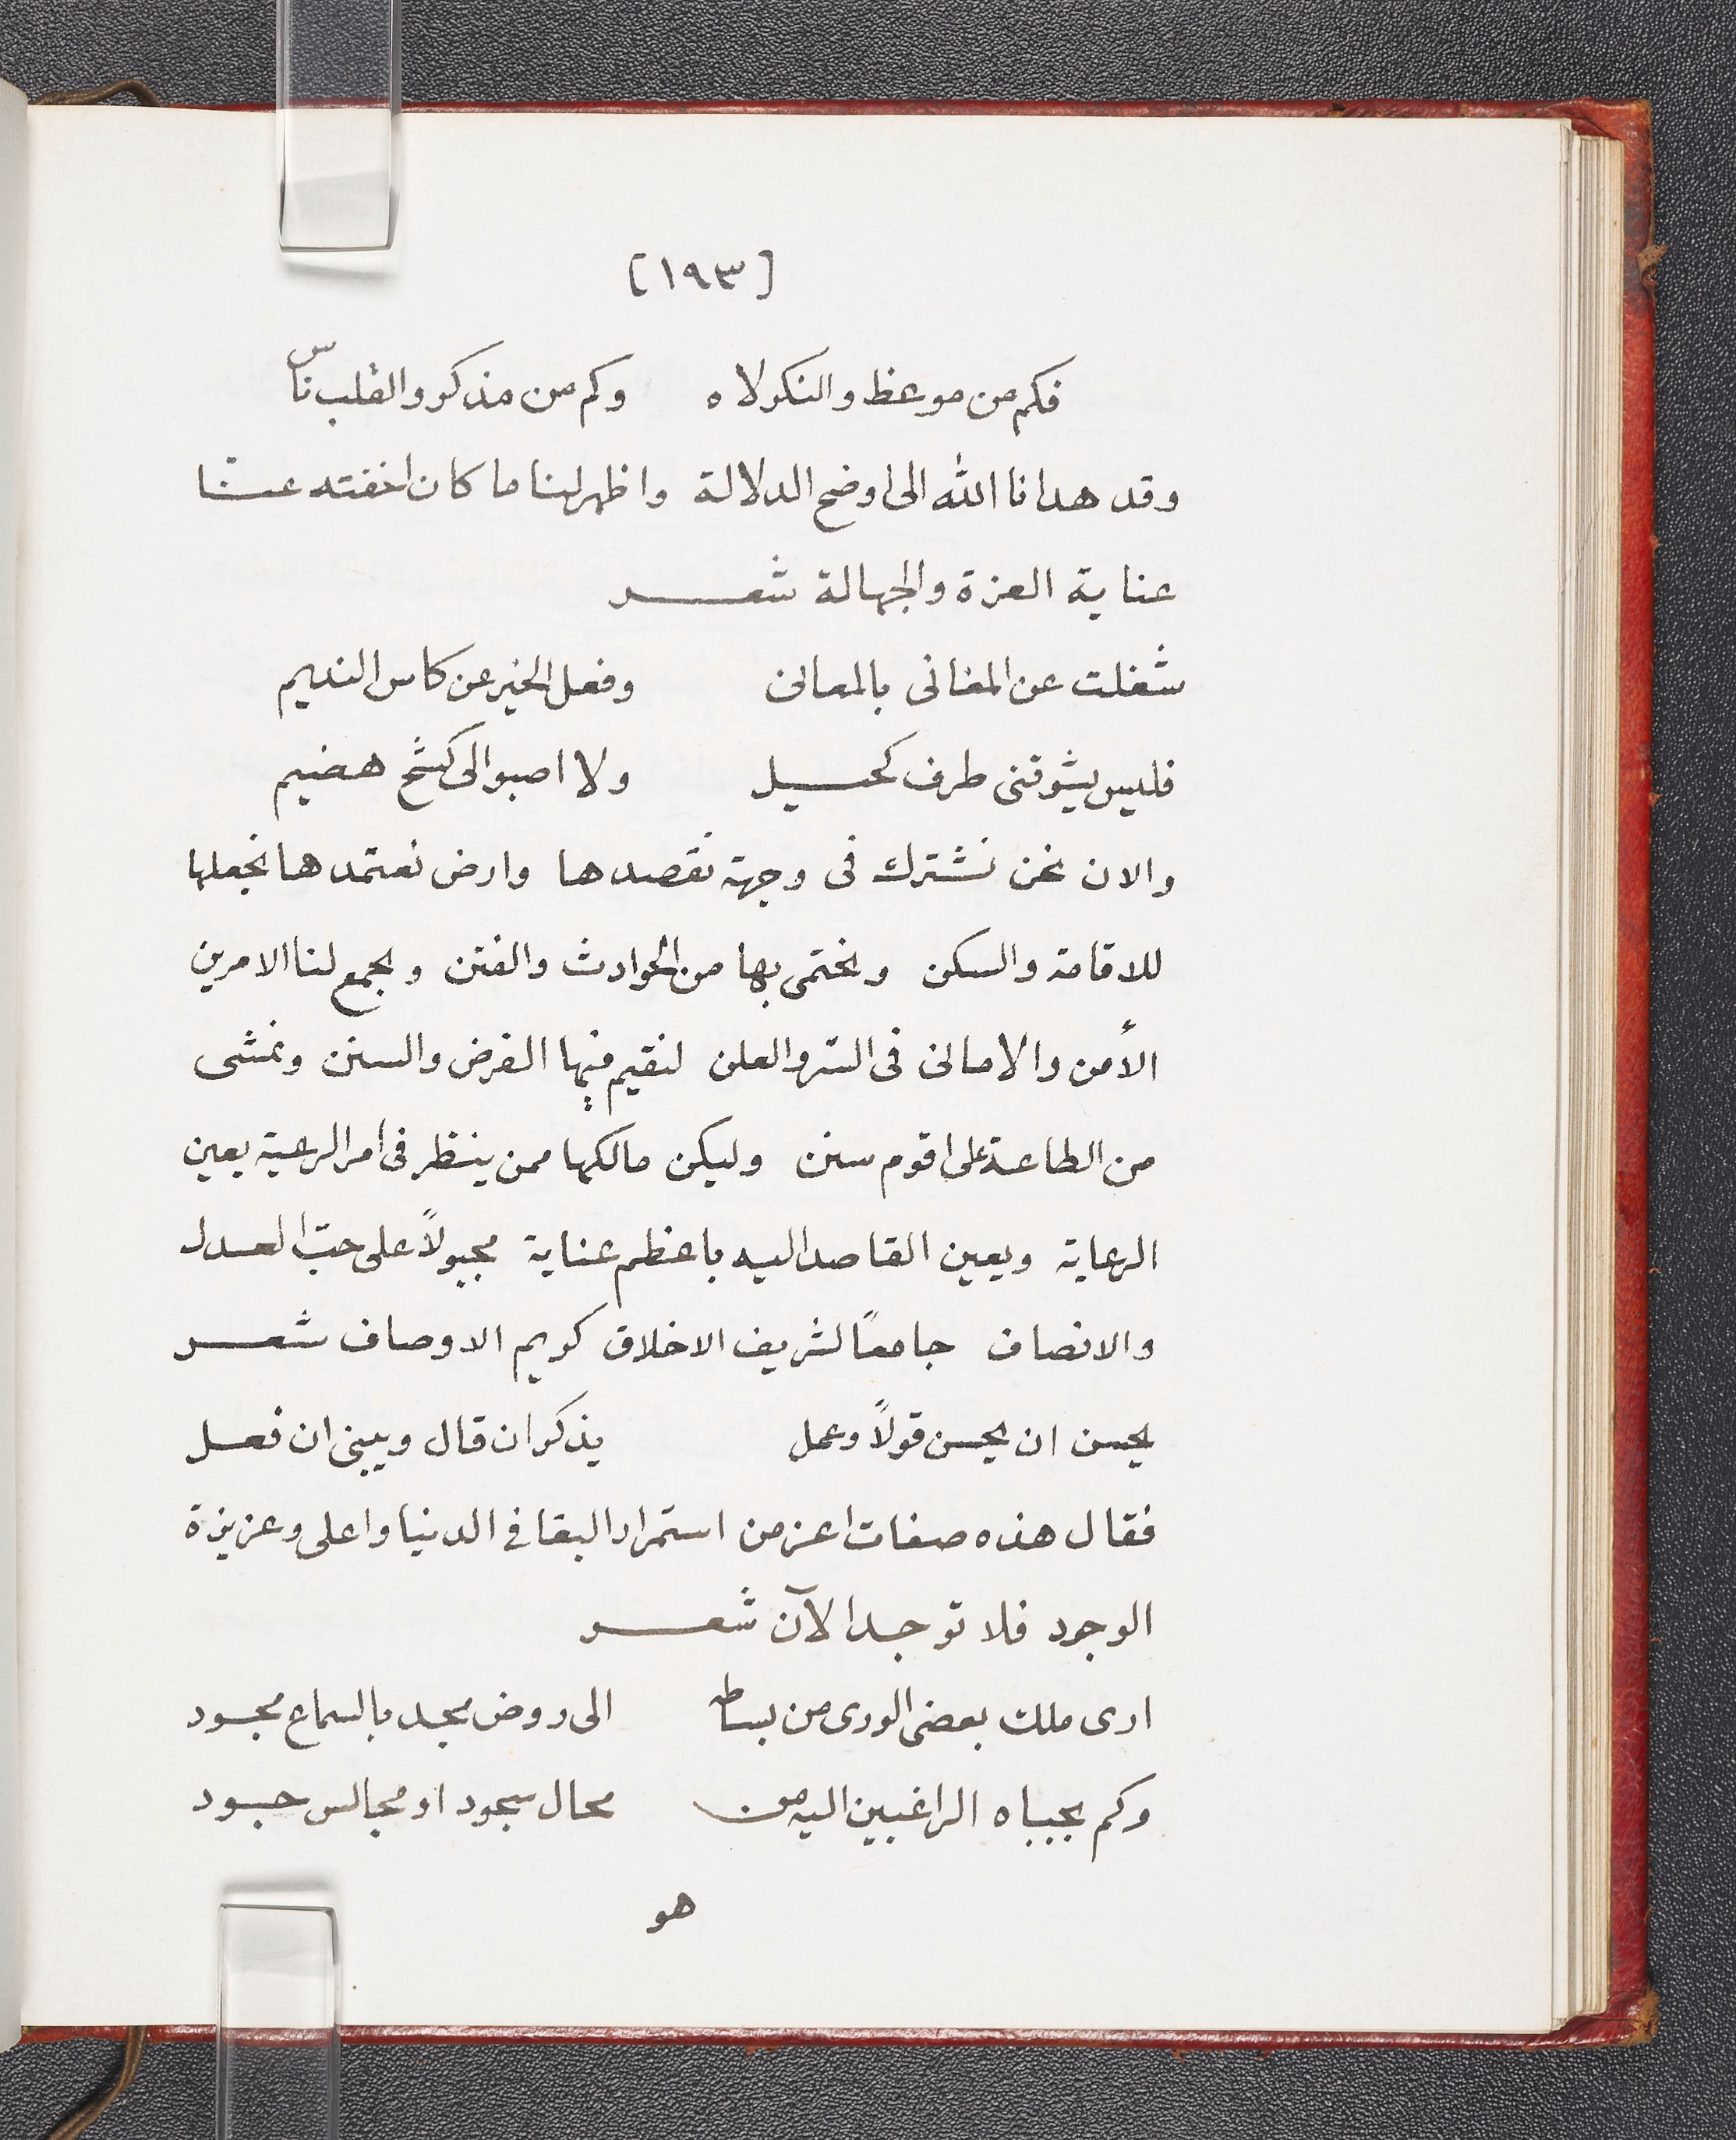 [١٩٣]
فكم من موعظ والنكر لاه وكم من مذكر والقلب ناسّ
وقد هدانا الله الى اوضح الدلالة واظهر لنا ما كان اخفته عنّا
عناية العزة والجهالة شعر
شغلت عن المغانى بالمعانى وفعل الخير عن كاس النديم
فليس يشوقنى طرف كحيل ولا اصبو الى كشح هضيم
والان نحن نشترك فى وجهة نقصدها وارض نعتمدها نجعلها
للاقامة والسكن ونحتمى بها من الحوادث والفتن ويجمع لنا الامرين
الأمن والامانى فى السّر والعلن لنقيم فيها الفرض والسنن ونمشى
من الطاعة على اقوم سنن وليكن مالكها ممن ينظر فى امر الرعية بعين
الرعاية ويعين القاصد اليه باعظم عناية مجبولاً على حبّ العدل
والانصاف جامعاً لشريف الاخلاق كريم الاوصاف شعر
يحسن ان يحسن قولاً وعمل يذكر ان قال ويبنى ان فعل
فقال هذه صفات اعز من استمرار البقا في الدنيا واعلى وعزيزة
الوجود فلا توجد الآن شعر
ارى ملك بعض الورى من بساطه الى روض مجد بالسماع مجود
وكم بجباه الراغبين اليه من محال سجود او مجالس جود
هو